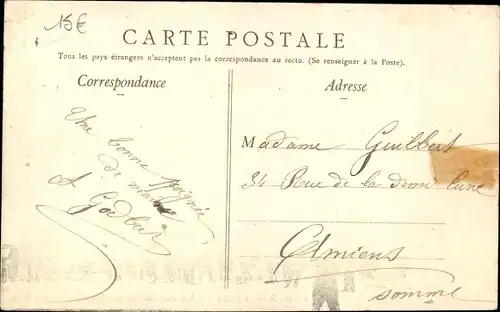 15€
CARTE POSTALE
Tous les pays étrangers n'acceptent pas la correspondance au recto. (Se renseigner à la Poste).
Correspondance
Adresse
Une bonne poignée
de main
A Godbert
Madame Guilbert
34 Rue de la demi lune
Amiens
Somme